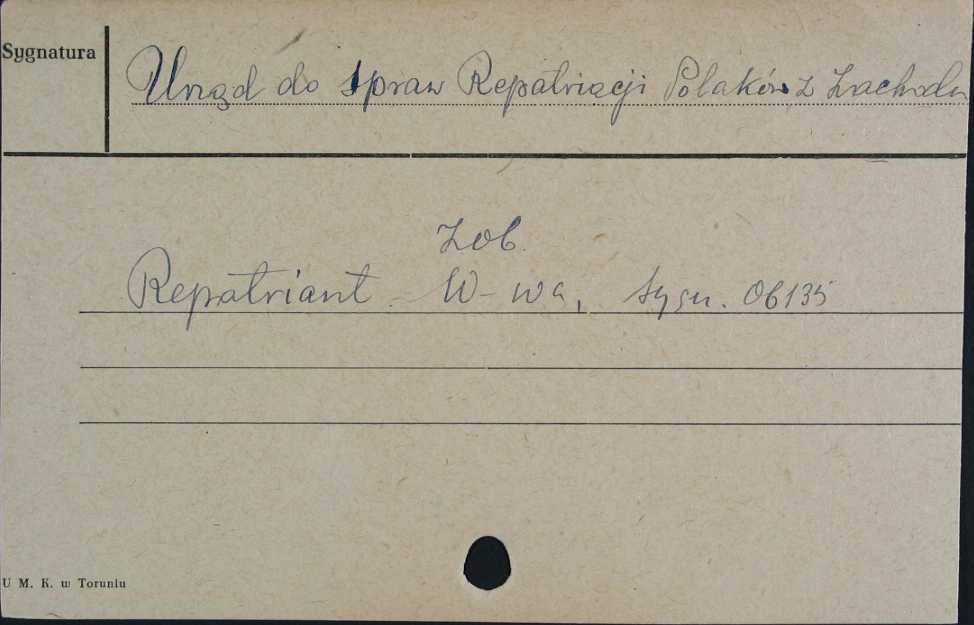 Sygnatura
Urząd do spraw Repatriacji Polaków z Zachodu
Zob.
Repatriant. W-wa, sygn. 06135
U M. K. w Toruniu